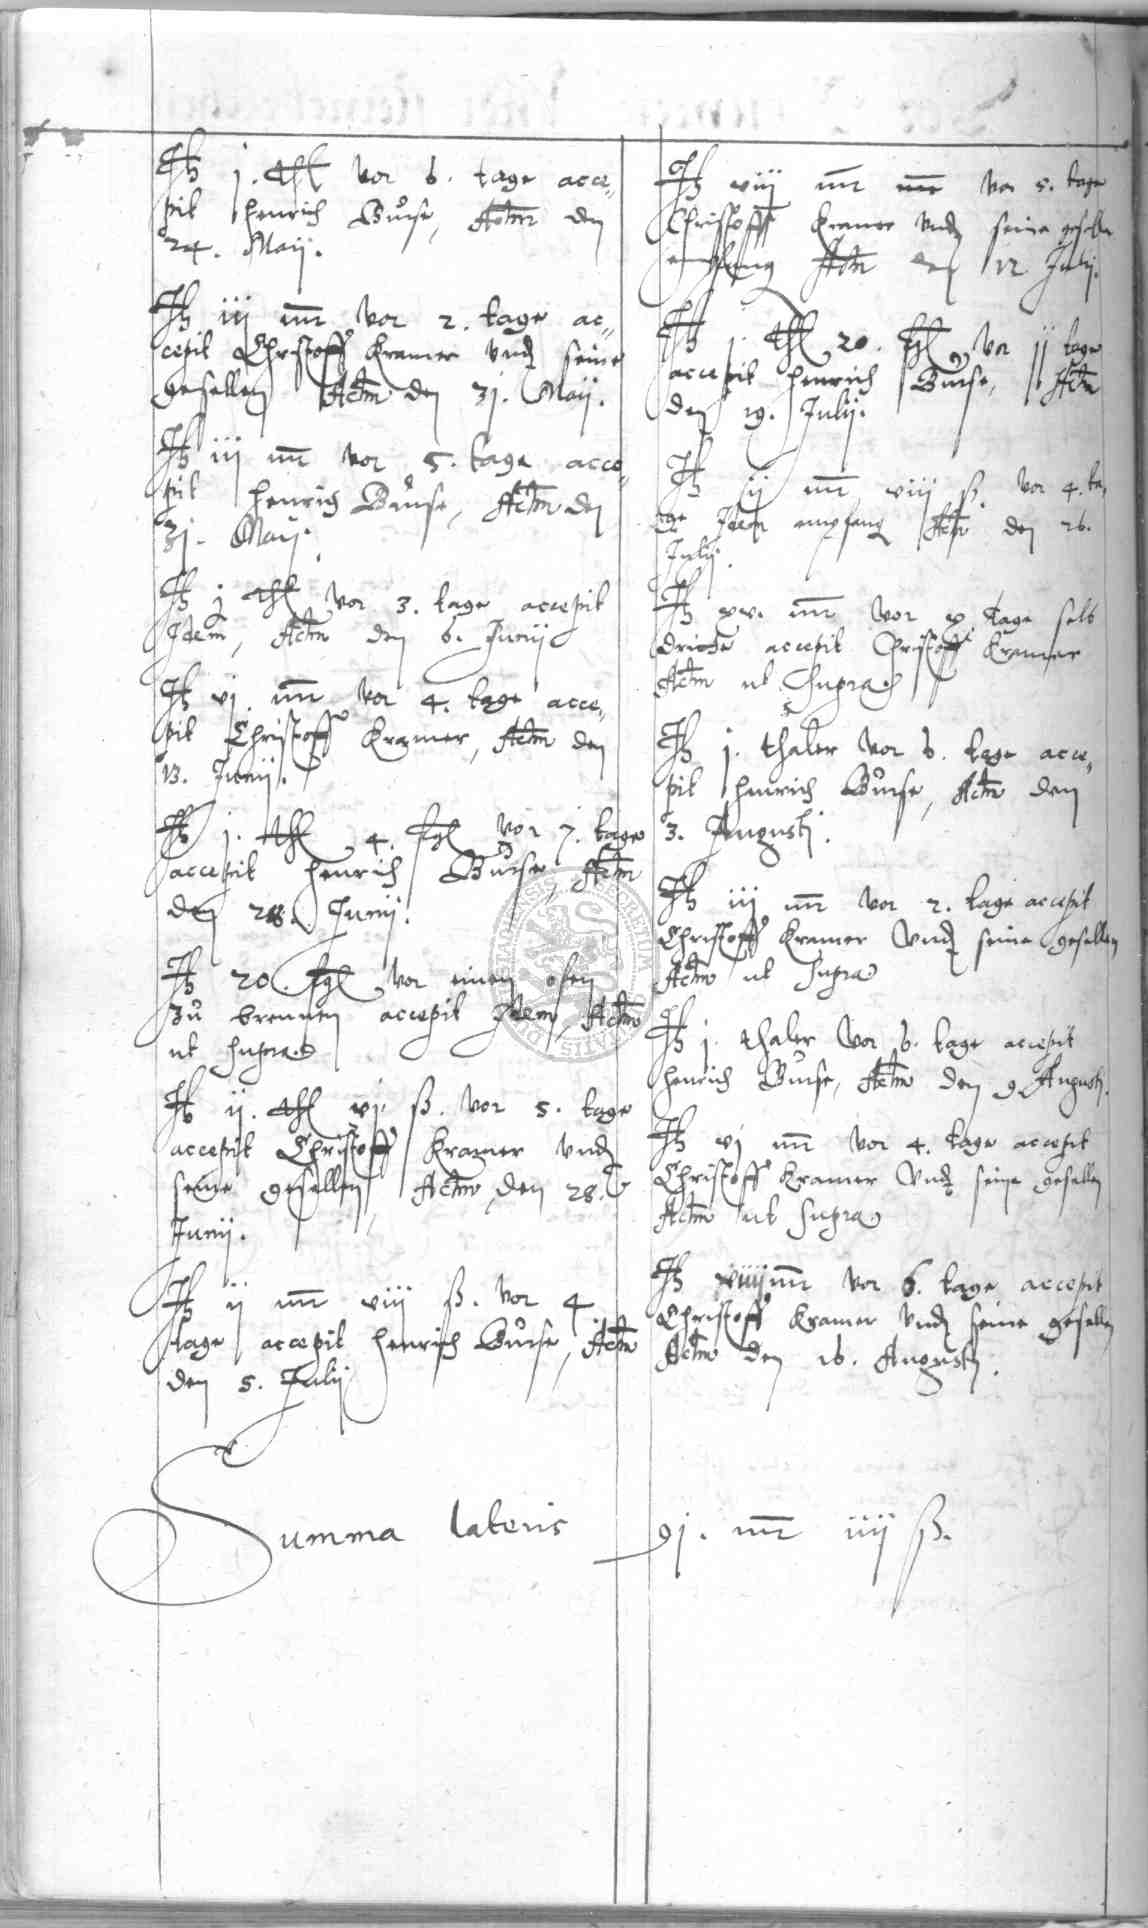 It̃ j. thl vor 6. tage acce„
pit Henrich Bůrse, Actm̃ den
24. Maij.
It̃ iij mr̃ vor 2. tage ac„
cepit Christoff Kramer vnd seine
gesellen Actm̃ den 31. Maij.
It̃ iij mr̃ vor 5. tage acce„
pit Henrich Bůrse, Actm̃ den
31. Maij.
It̃ j thl vor 3. tage accepit
Idem, Actm̃ den 6. Junij
It̃ vj mr̃ vor 4. tage acce„
pit Christoff Kramer, Actm̃ den
13. Junij.
It̃ j. thl 4. sgl vor 7. tage
accepit Henrich Bůrse, Actm̃
den 28. Junij.
It̃ 20. sgl vor einen ofen
Zů brennen accepit Idem, Actm̃
ut supra
It̃ ij. thl vj ß. vor 5. tage
accepit Christoff Kramer vnd
seine gesellen, Actm̃, den 28.
Junij.
It̃ ij mr̃ viij ß. vor 4
tage accepit Henrich Bůrse, Actm̃
den 5. Julij
It̃ viij mr̃ vor 5. tage
Christoff Kramer vnd seine gesellen
empfang Actm̃ den 12 Julij.
It̃ j. thl 20. sgl vor jj tage
accepit Henrich Bůrse, Actm̃
den 19. Julij.
It̃ ij mr̃ viij ß. vor 4. ta„
ge Idem empfang Actm̃ den 26.
Julij.
It̃ xv. mr̃ vor x. tage selb
dritte accepit Christoff Kramer
Actm̃ ut supra
It̃ j. thaler vor 6. tage acce„
pit Henrich Bůrse, Actm̃ den
3. Augusti.
It̃ iij mr̃ vor 2. tage accepit
Christoff Kramer vnd seine gesellen
Actm̃ ut supra
It̃ j. thaler vor 6. tage accepit
Henrich Bůrse, Actm̃ den 9 Augusti.
It̃ vj mr̃ vor 4. tage accepit
Christoff Kramer vnd seine gesellen
Actm̃ ut supra
It̃ mr̃ vor 6. tage accepit
Christoff Kramer vnd seine gesellen
Actm̃ den 16. Augusti.
Summa lateris 91. mr̃ iiij ß.